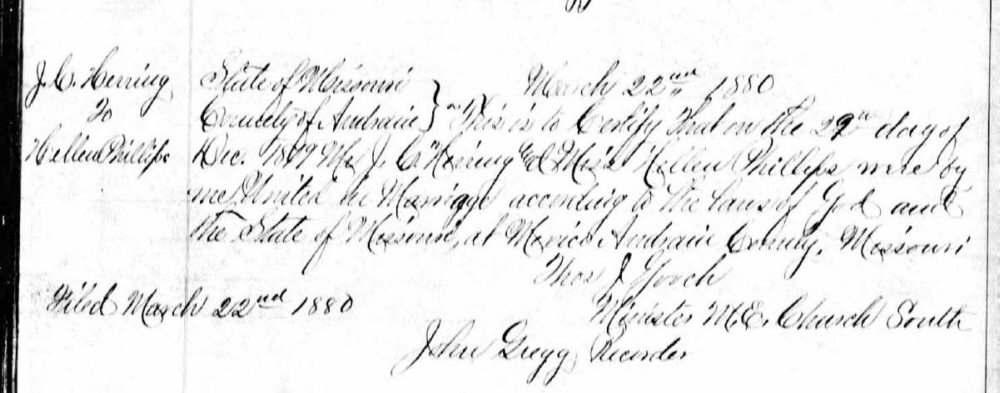 J. C. Herring
To
Hellen Phillips
March 22nd 1880
State of Missouri
County of Audrain } This is to Certify that on the 29th day of
Dec. 1879 Mr J. C. Herring and Miss Hellen Phillips were by
me United in Marriage according to the laws of God and
the State of Missouri, at Mexico Audrain County, Missouri
Thos J Gooch
Minister M.E. Church South
Filed March 22nd 1880
John Gregg Recorder